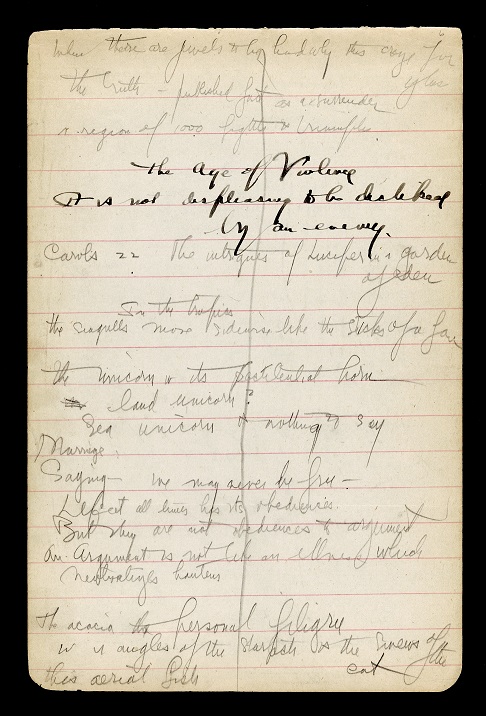 When there are jewels to be had why this craze for
glass
the truth — published just as a surrender
a region of 1000 fights & triumphs
the age of Violence
It is not displeasing to be disliked
by an enemy.
Carols 22 The intrigues of Lucifer in a garden
of eden
In the tropics
the seagulls move sidewise like the sticks of a fan
the unicorn & its pestilential horn
land unicorn?
Sea unicorn & nothing to say
Marriage.
Saying — we may never be free —
all times has its obediences.
But they are not obediences to argument
An Argument is not like an illness which
neutralizes
The acacia personal filigree
w angles of the starfish or the sinews of the
cat
this aerial fish